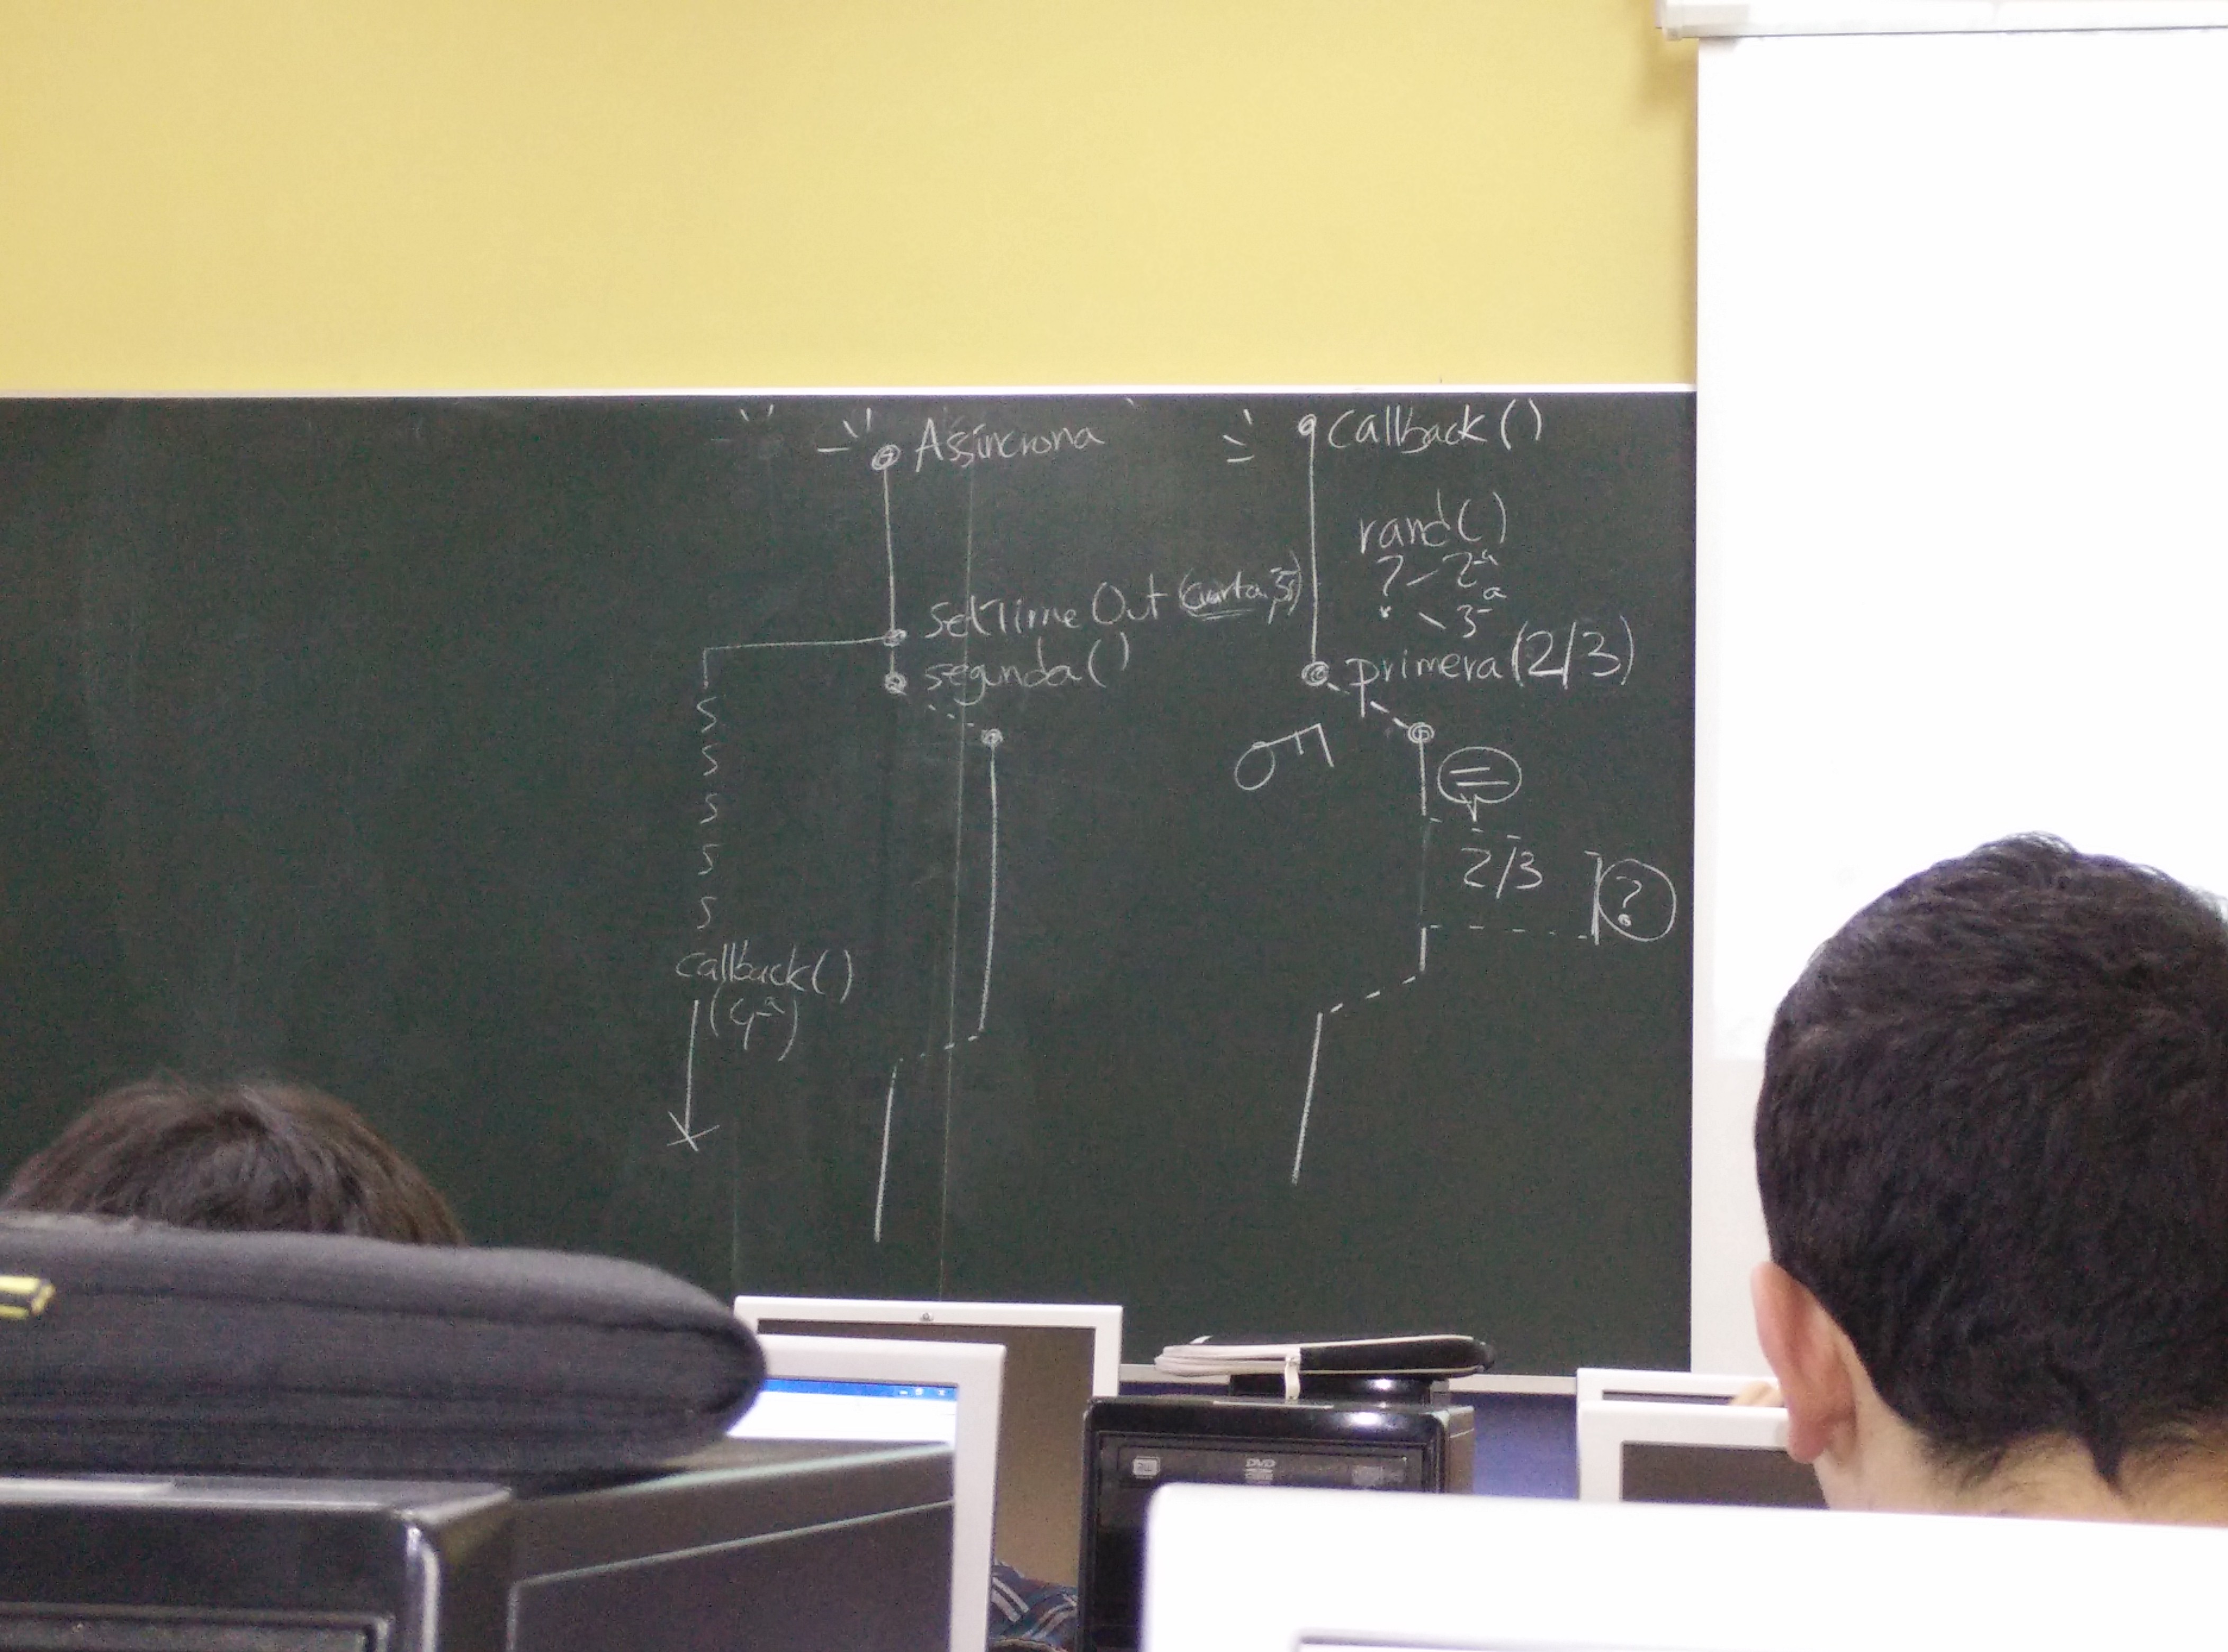 Assíncrona
setTimeOut (cuarta, 5)
segunda()
S
S
S
S
S
callback()
(4ª)
callback()
rand()
? 2ª
3ª
primera(2/3)
2/3
?
RW
DVD